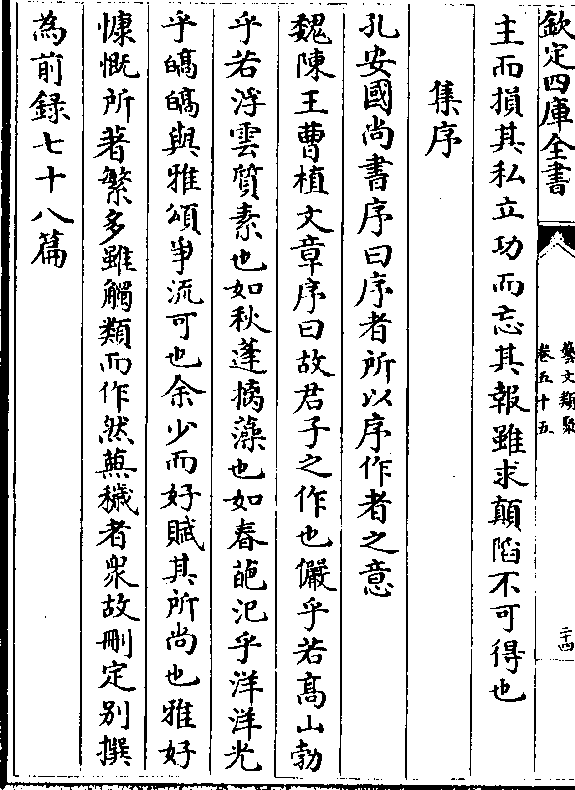 欽定四庫全書
藝文類聚
卷五十五
二十四
主而損其私立功而忘其報雖求顛陷不可得也
集序
孔安國尚書序曰序者所以序作者之意
魏陳王曹植文章序曰故君子之作也儼乎若高山勃
乎若浮雲質素也如秋蓬摛藻也如春葩氾乎洋洋光
乎皜皜與雅頌爭流可也余少而好賦其所尚也雅好
慷慨所著繁多雖觸類而作然蕪穢者衆故刪定别撰
為前録七十八篇